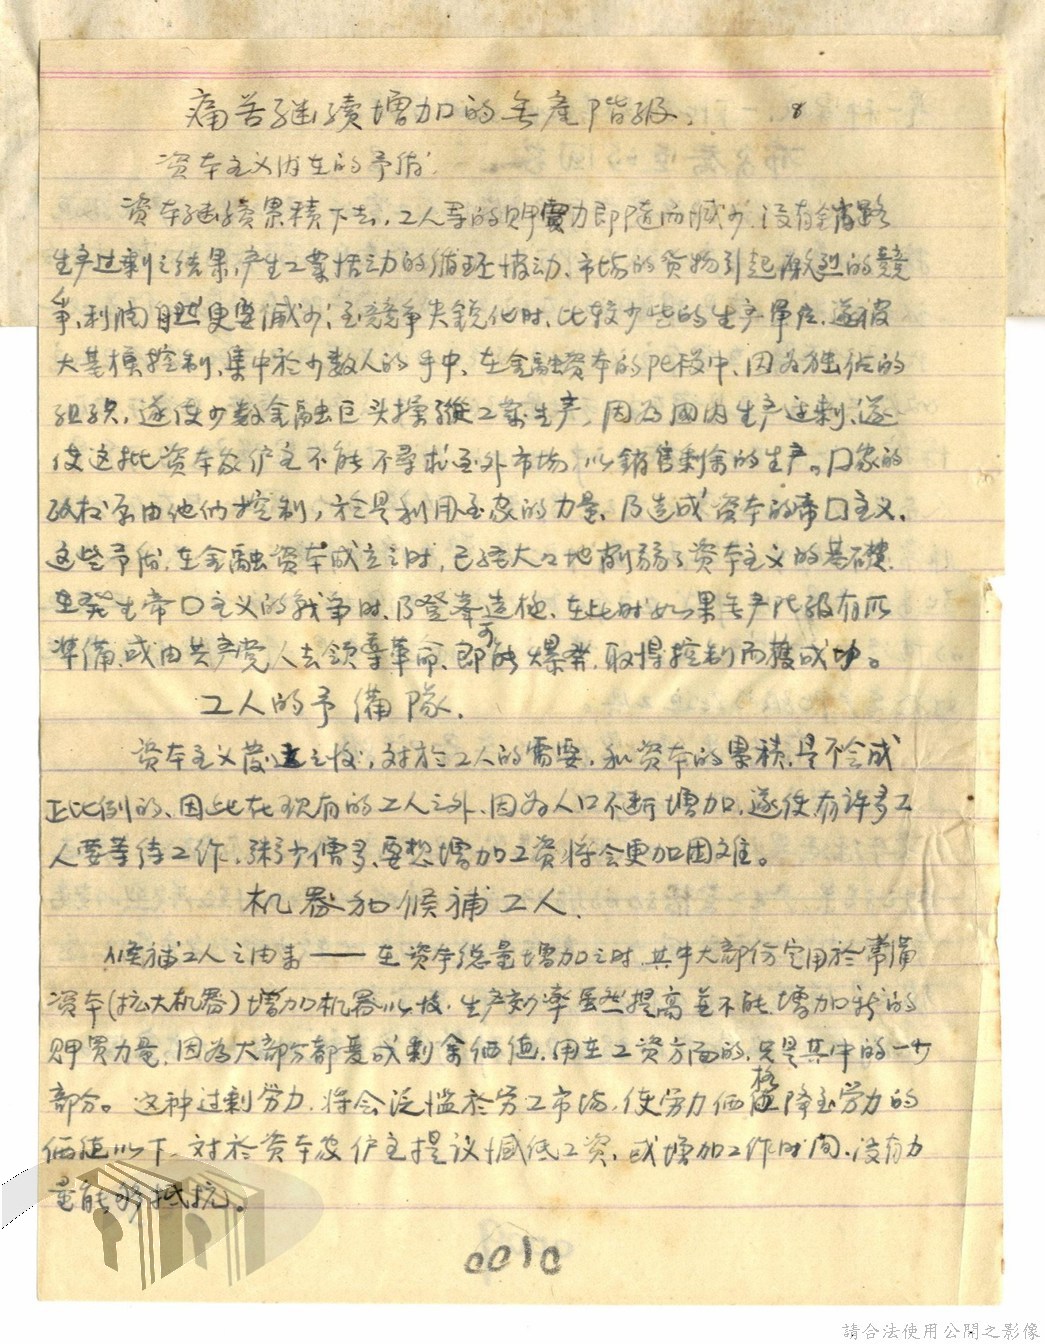 痛苦继续增加的无産階級、 8
资本主义内在的矛盾：
资本继续累積下去，工人羣的购買力即隨而减少.没有銷路
生产过剩之结果，产生工業活动的循环波动、市场的货物引起剧烈的競
争、利润自然更要减少；至競争尖銳化时、比较少些的生产單位、遂被
大基模控制、集中於少数人的手中、在金融资本的阶段中、因为独佔的
组织，遂使少数金融巨头操縱工業生产，因为國内生产过剩、遂
使这批资本家伊主不能不寻求至外市场 以銷售剩余的生产。口家的
政权原由他们控制，於是利用国家的力量、乃造成资本的帝口主义、
这些矛盾，在金融资本成立之时，已经大大地削弱了资本主义的基礎、
至發生帝口主义的战争时、乃登峯造極、在此时如果无产阶级有所
準備、或由共产党人去领導革命、即可能爆發、取得控制而獲成功。
工人的予備隊、
资本主义发达之後，对於工人的需要，和资本的累積、是不会成
正比例的、因此在现有的工人之外、因为人口不断增加、遂使有許多工
人要等待工作，粥少僧多、要想增加工资将会更加困难。
机器和候補工人、
候補工人之由来——在资本總量增加之时、其中大部份定用於常備
资本(扩大机器)增加机器以後、生产効率虽然提高並不能增加新的
购買力量，因为大部分都变成剩余価值、用在工资方面的、只是其中的一少
部分。这种过剩劳力、将会泛滥於劳工市场、使劳力価格降至劳力的
価值以下、对於资本家伊主提议减低工资、或增加工作时间、没有力
量能够抵抗。
0010
請合法使用公開之影像